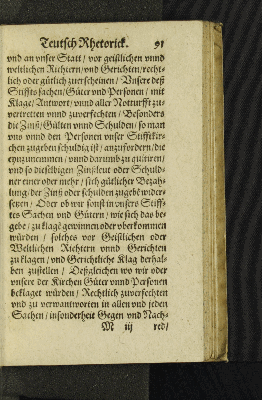 Teutsch Rhetorick. 91
vnd an vnser Statt / vor geistlichen vnnd
weltlichen Richtern / vnd Gerichten / rechts
lich oder gütlich zuerscheinen / Vnsere deß
Stiffts sachen / Güter vnd Personen / mit
Klage / Antwort / vnnd aller Notturfft zu-
vertretten vnnd zuverfechten / Besonders
die Zinß / Gülten vnnd Schulden / so man
vns vnnd den Personen vnser Stifftkir-
chen zugeben schuldig ist / anzufordern / die
eynzunemmen / vnnd darumb zu quitiren /
vnd so dieselbigen Zinßleut oder Schuld-
ner einer oder mehr / sich gütlicher Bezah-
lung / der Zinß oder schulden zugebē wider-
setzen / Oder ob wir sonst in vnsers Stiff-
tes Sachen vnd Gütern / wie sich das be-
gebe / zu klagē gewinnen oder vberkommen
würden / solches vor Geistlichen oder
Weltlichen Richtern vnnd Gerichten
zu klagen / vnd Gerichtliche Klag derhal-
ben zustellen / Deßgleichen wo wir oder
vnsere der Kirchen Güter vnnd Personen
beklaget würden / Rechtlich zuverfechten
vnd zu verwantworten in allen vnd jeden
Sachen / insonderheit Gegen vnd Nach-
M iij red /